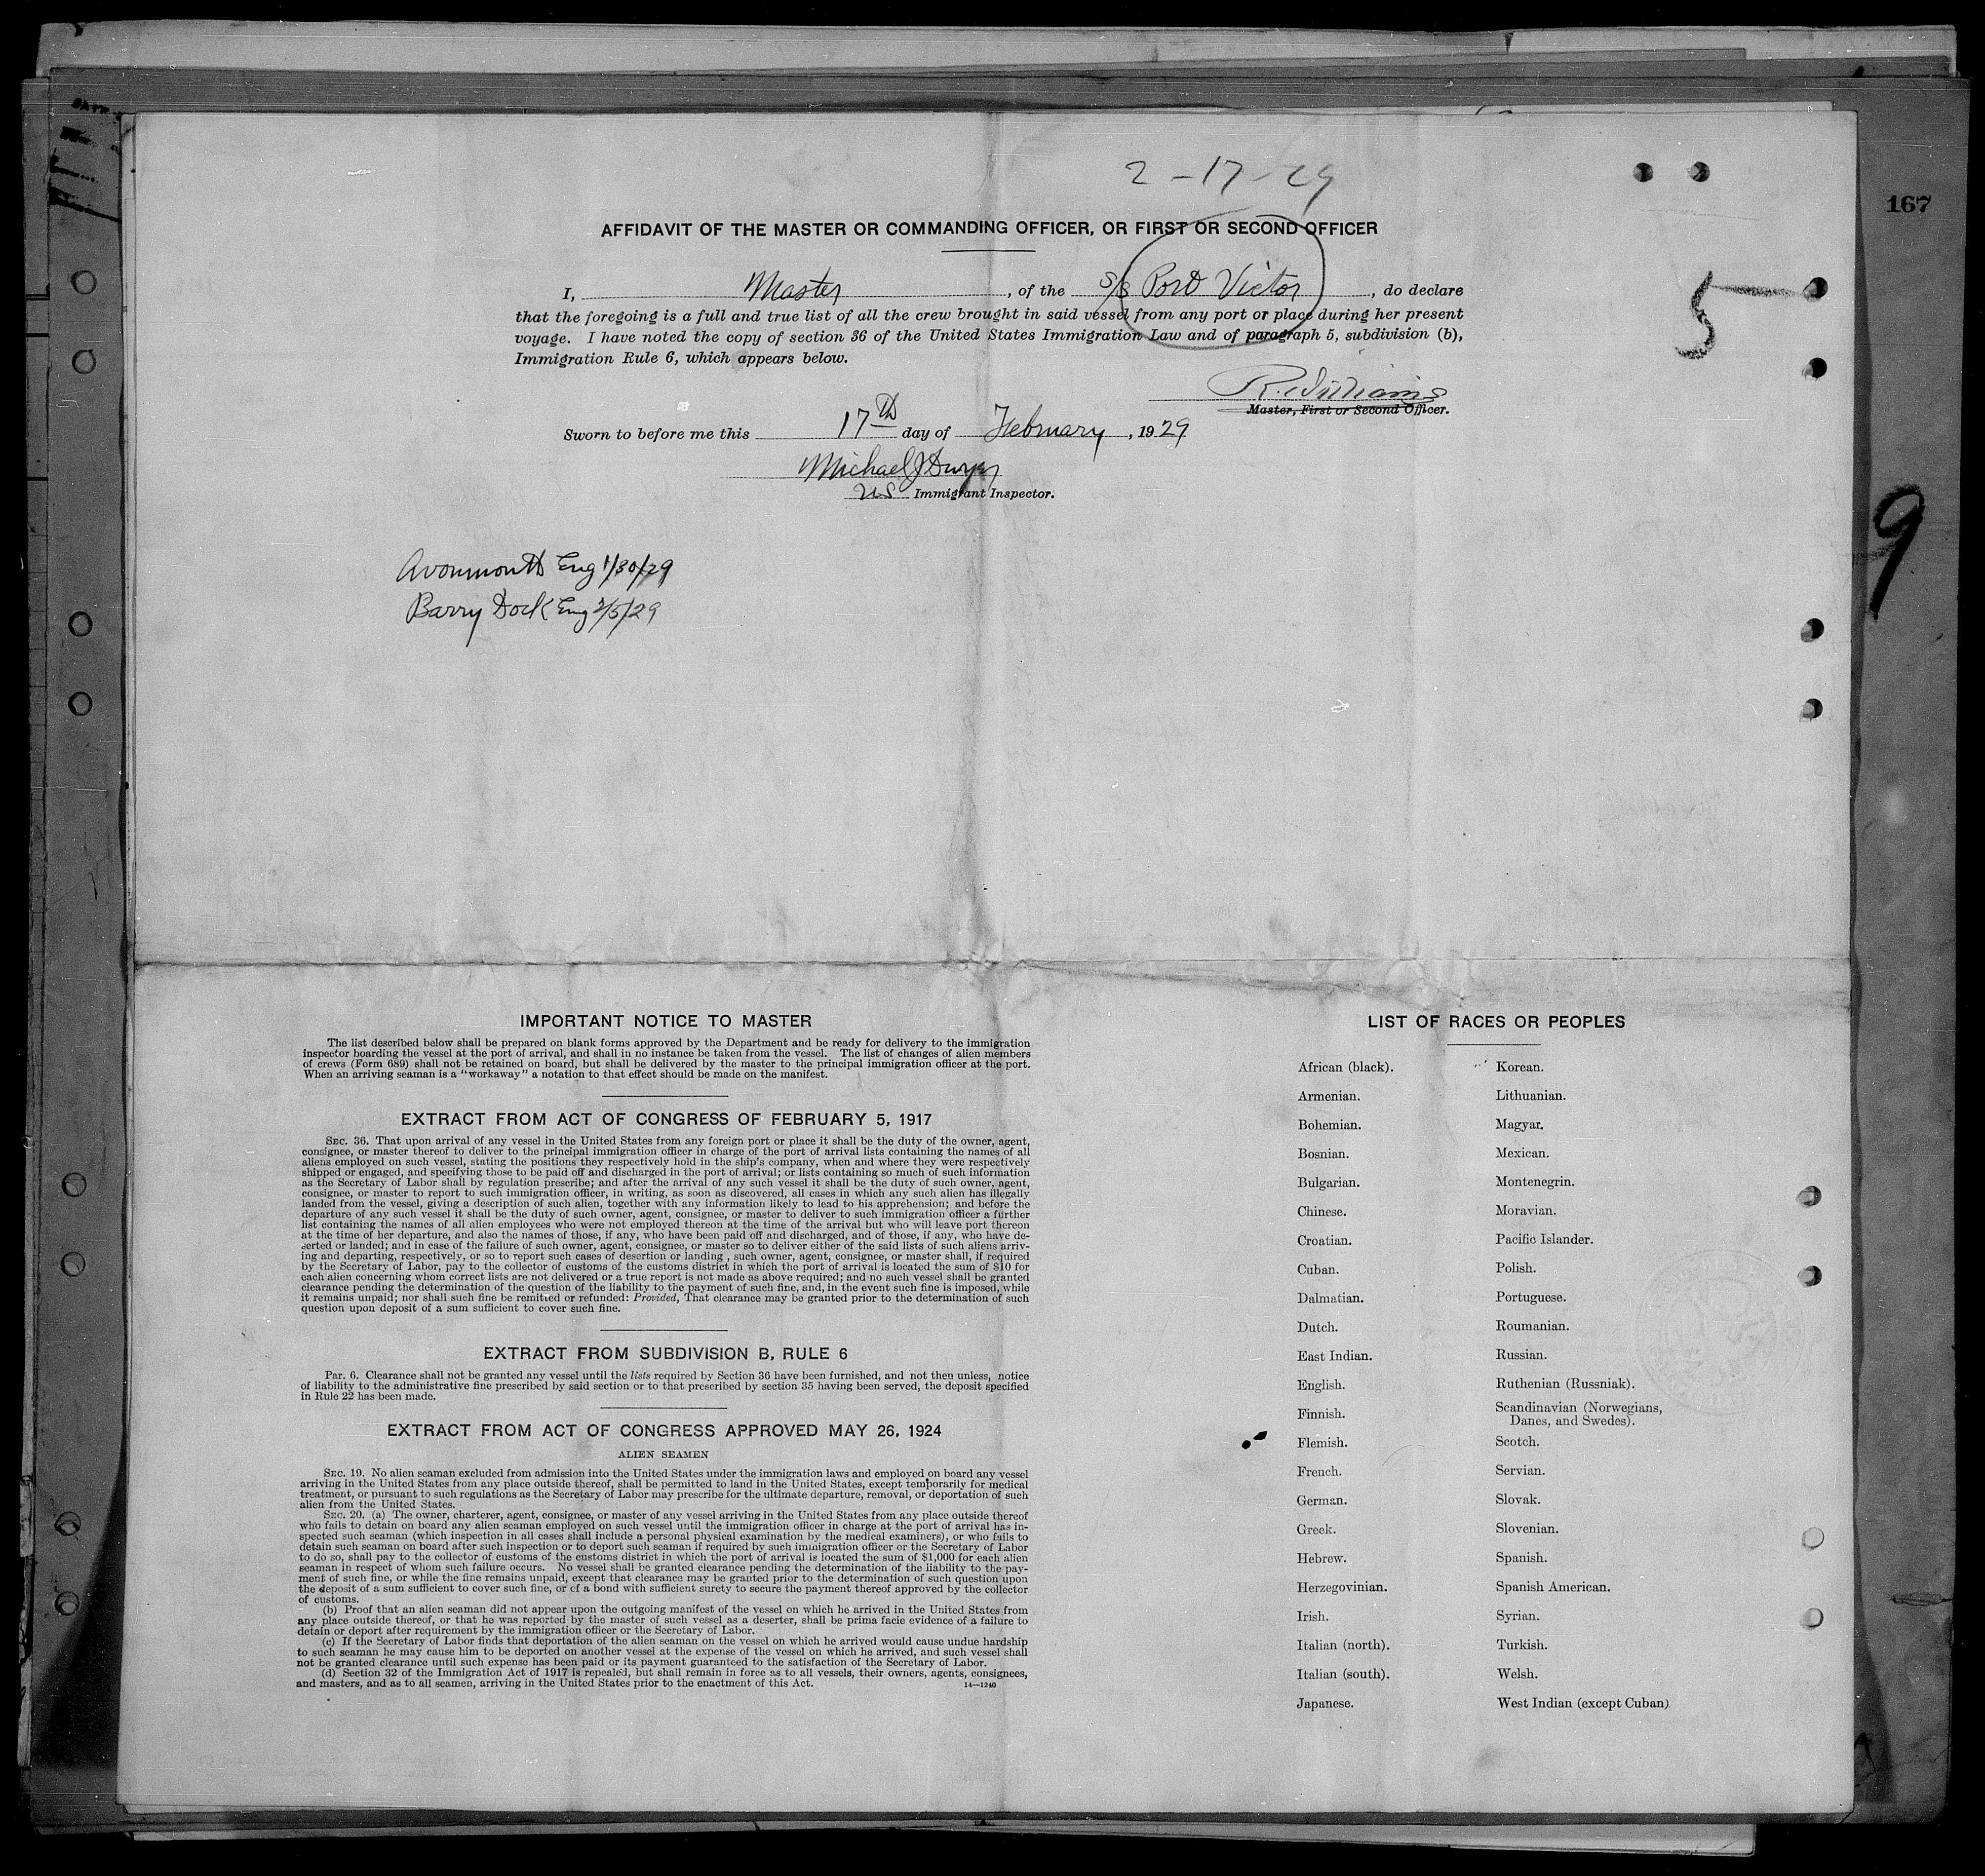 2-17-29
167
AFFIDAVIT OF THE MASTER OR COMMANDING OFFICER, OR FIRST OR SECOND OFFICER
I, Master, of the S/S Port Victor, do declare
that the foregoing is a full and true list of all the crew brought in said vessel from any port or place during her present
voyage. I have noted the copy of section 36 of the United States Immigration Law and of paragraph 5, subdivision (b),
Immigration Rule 6, which appears below.
5
R. Williams
Master, First or Second Officer.
Sworn to before me this 17th day of February, 1929
Michael J Dwyer
US Immigrant Inspector.
9
Avonmouth Eng 1/30/29
Barry Dock Eng 2/5/29
IMPORTANT NOTICE TO MASTER
The list described below shall be prepared on blank forms approved by the Department and be ready for delivery to the immigration
inspector boarding the vessel at the port of arrival, and shall in no instance be taken from the vessel. The list of changes of alien members
of crews (Form 689) shall not be retained on board, but shall be delivered by the master to the principal immigration officer at the port.
When an arriving seaman is a "workaway" a notation to that effect should be made on the manifest.
EXTRACT FROM ACT OF CONGRESS OF FEBRUARY 5, 1917
SEC. 36. That upon arrival of any vessel in the United States from any foreign port or place it shall be the duty of the owner, agent,
consignee, or master thereof to deliver to the principal immigration officer in charge of the port of arrival lists containing the names of all
aliens employed on such vessel, stating the positions they respectively hold in the ship's company, when and where they were respectively
shipped or engaged, and specifying those to be paid off and discharged in the port of arrival; or lists containing so much of such information
as the Secretary of Labor shall by regulation prescribe; and after the arrival of any such vessel it shall be the duty of such owner, agent,
consignee, or master to report to such immigration officer, in writing, as soon as discovered, all cases in which any such alien has illegally
landed from the vessel, giving a description of such alien, together with any information likely to lead to his apprehension; and before the
departure of any such vessel it shall be the duty of such owner, agent, consignee, or master to deliver to such immigration officer a further
list containing the names of all alien employees who were not employed thereon at the time of the arrival but who will leave port thereon
at the time of her departure, and also the names of those, if any, who have been paid off and discharged, and of those, if any, who have de-
serted or landed; and in case of the failure of such owner, agent, consignee, or master so to deliver either of the said lists of such aliens arriv-
ing and departing, respectively, or so to report such cases of desertion or landing, such owner, agent, consignee, or master shall, if required
by the Secretary of Labor, pay to the collector of customs of the customs district in which the port of arrival is located the sum of $10 for
each alien concerning whom correct lists are not delivered or a true report is not made as above required; and no such vessel shall be granted
clearance pending the determination of the question of the liability to the payment of such fine, and, in the event such fine is imposed, while
it remains unpaid; nor shall such fine be remitted or refunded: Provided, That clearance may be granted prior to the determination of such
question upon deposit of a sum sufficient to cover such fine.
EXTRACT FROM SUBDIVISION B, RULE 6
PAR. 6. Clearance shall not be granted any vessel until the lists required by Section 36 have been furnished, and not then unless, notice
of liability to the administrative fine prescribed by said section or to that prescribed by section 35 having been served, the deposit specified
in Rule 22 has been made.
EXTRACT FROM ACT OF CONGRESS APPROVED MAY 26, 1924
ALIEN SEAMEN
SEC. 19. No alien seaman excluded from admission into the United States under the immigration laws and employed on board any vessel
arriving in the United States from any place outside thereof, shall be permitted to land in the United States, except temporarily for medical
treatment, or pursuant to such regulations as the Secretary of Labor may prescribe for the ultimate departure, removal, or deportation of such
alien from the United States.
SEC. 20. (a) The owner, charterer, agent, consignee, or master of any vessel arriving in the United States from any place outside thereof
who fails to detain on board any alien seaman employed on such vessel until the immigration officer in charge at the port of arrival has in-
spected such seaman (which inspection in all cases shall include a personal physical examination by the medical examiners), or who fails to
detain such seaman on board after such inspection or to deport such seaman if required by such immigration officer or the Secretary of Labor
to do so, shall pay to the collector of customs of the customs district in which the port of arrival is located the sum of $1,000 for each alien
seaman in respect of whom such failure occurs. No vessel shall be granted clearance pending the determination of the liability to the pay-
ment of such fine, or while the fine remains unpaid, except that clearance may be granted prior to the determination of such question upon
the deposit of a sum sufficient to cover such fine, or of a bond with sufficient surety to secure the payment thereof approved by the collector
of customs.
(b) Proof that an alien seaman did not appear upon the outgoing manifest of the vessel on which he arrived in the United States from
any place outside thereof, or that he was reported by the master of such vessel as a deserter, shall be prima facie evidence of a failure to
detain or deport after requirement by the immigration officer or the Secretary of Labor.
(c) If the Secretary of Labor finds that deportation of the alien seaman on the vessel on which he arrived would cause undue hardship
to such seaman he may cause him to be deported on another vessel at the expense of the vessel on which he arrived, and such vessel shall
not be granted clearance until such expense has been paid or its payment guaranteed to the satisfaction of the Secretary of Labor.
(d) Section 32 of the Immigration Act of 1917 is repealed, but shall remain in force as to all vessels, their owners, agents, consignees,
and masters, and as to all seamen, arriving in the United States prior to the enactment of this Act.
14—1240
LIST OF RACES OR PEOPLES
African (black).
Armenian.
Bohemian.
Bosnian.
Bulgarian.
Chinese.
Croatian.
Cuban.
Dalmatian.
Dutch.
East Indian.
English.
Finnish.
Flemish.
French.
German.
Greek.
Hebrew.
Herzegovinian.
Irish.
Italian (north).
Italian (south).
Japanese.
Korean.
Lithuanian.
Magyar.
Mexican.
Montenegrin.
Moravian.
Pacific Islander.
Polish.
Portuguese.
Roumanian.
Russian.
Ruthenian (Russniak).
Scandinavian (Norwegians,
Danes, and Swedes).
Scotch.
Servian.
Slovak.
Slovenian.
Spanish.
Spanish American.
Syrian.
Turkish.
Welsh.
West Indian (except Cuban)